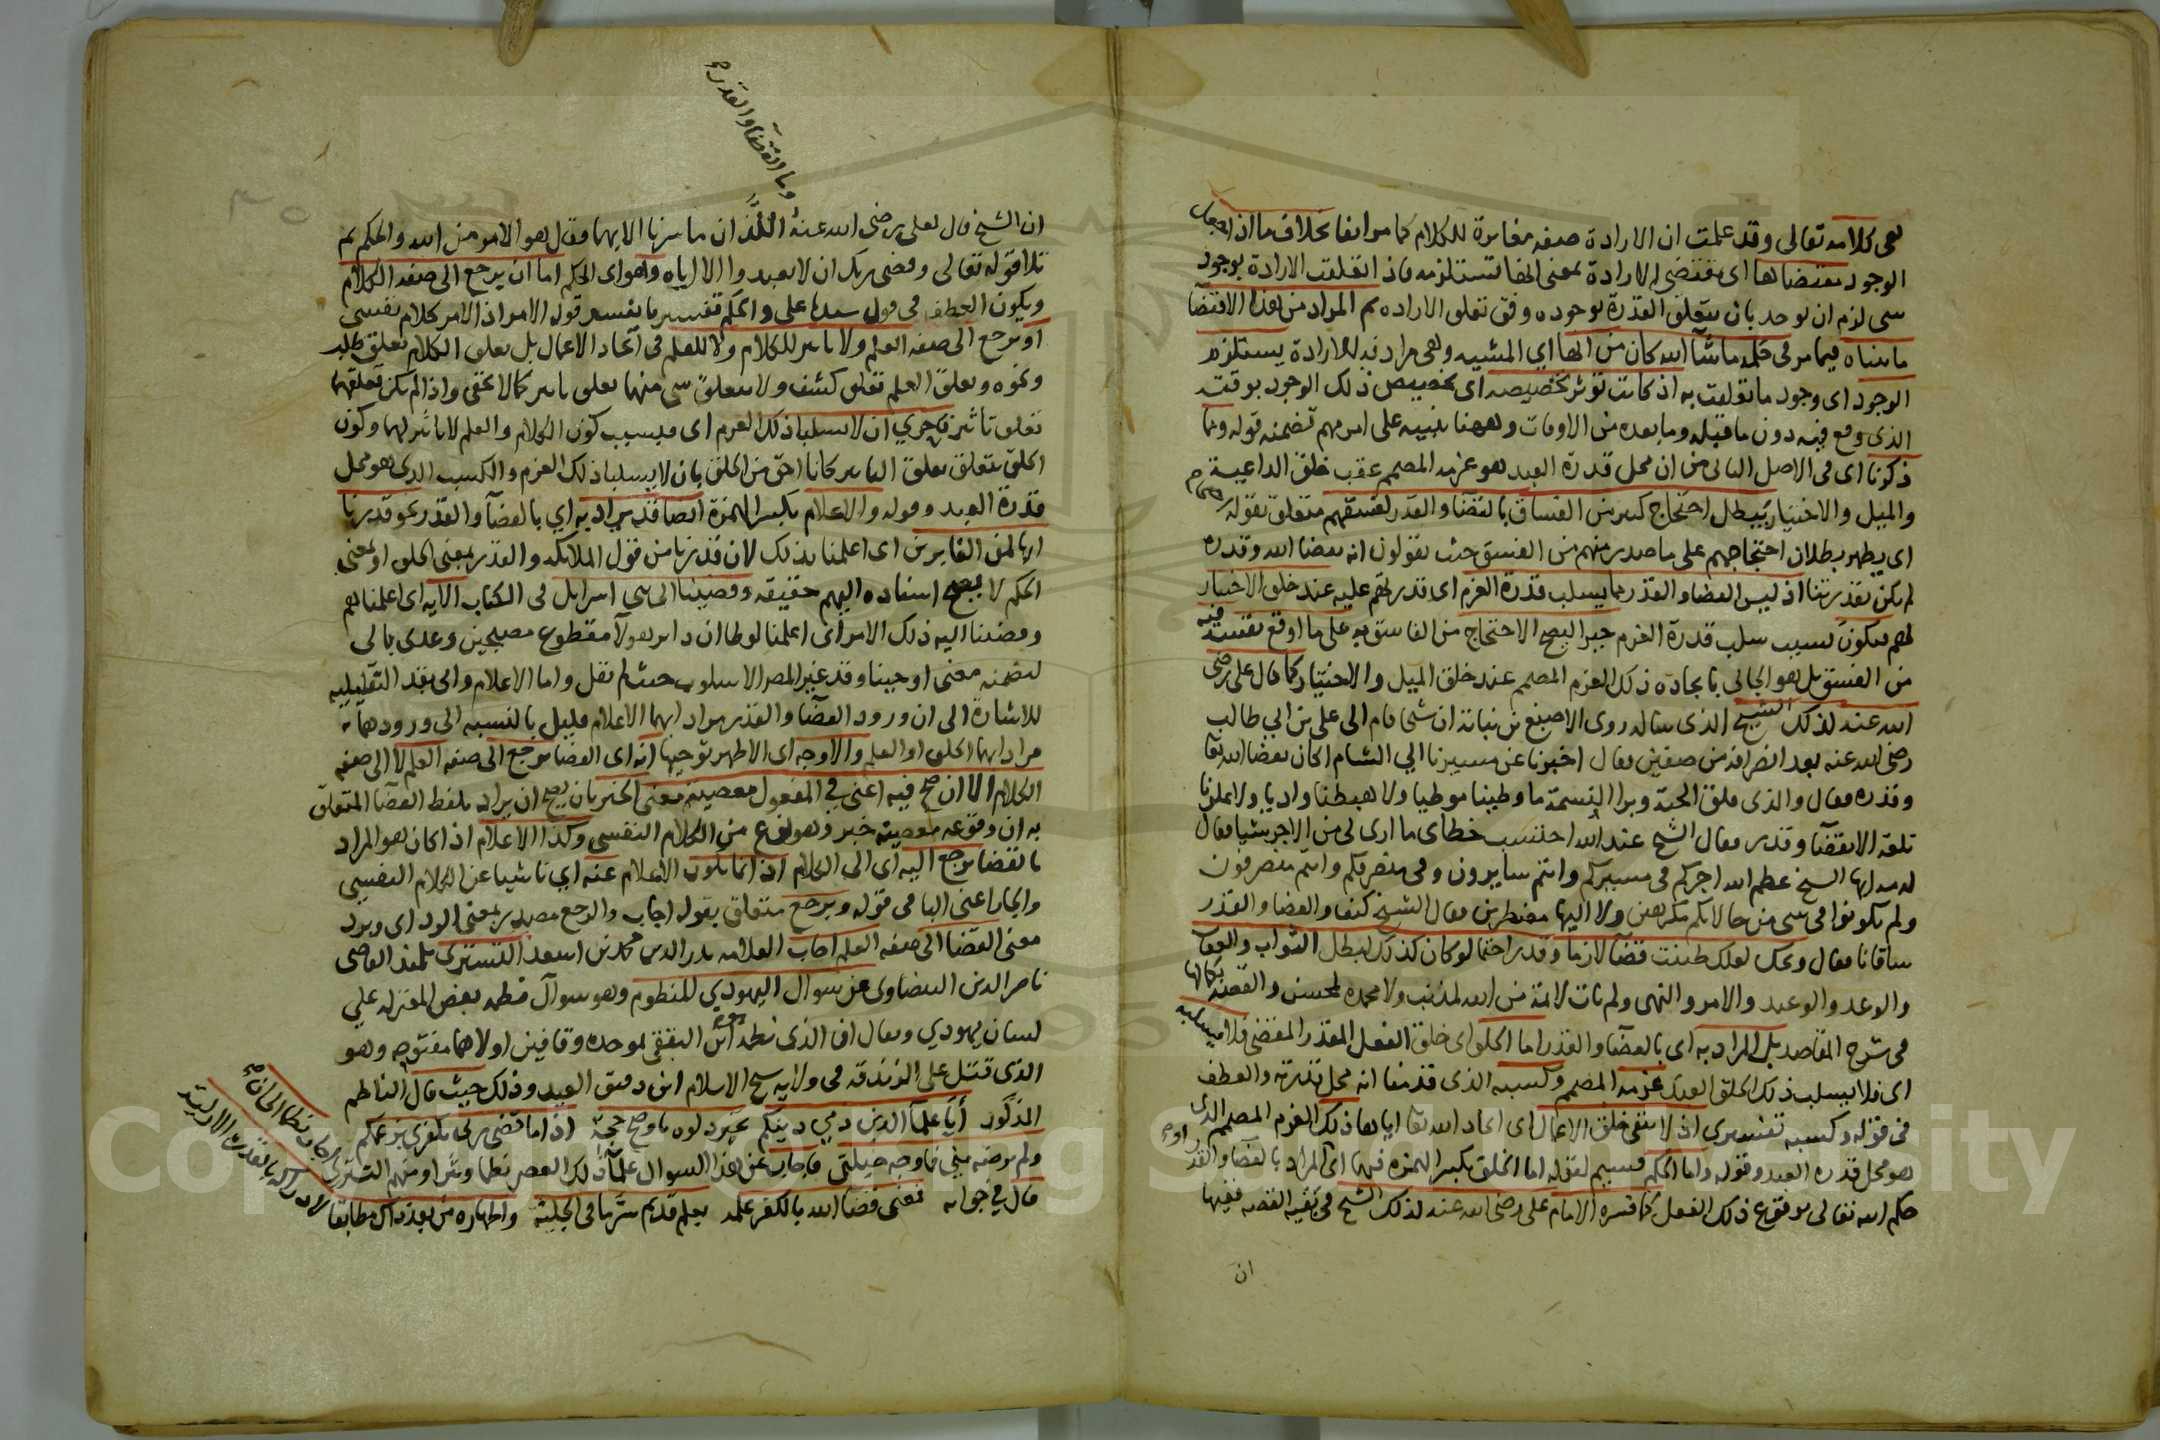 هي كلامه تعالى وقد علمت ان الارادة صفة مغايرة للكلام كما مر انفا بخلاف ما اذا جعل
الوجود مقتضاها اى مقتضى الارادة بمعنى انها تستلزمه فاذا تعلقت الارادة بوجود
شى لزم ان يوجد بان تتعلق القدرة بوجوده وفق تعلق الاراده ثم المراد من هذا الاقتضا
ما بيناه فيما مر فى جملة ماشا الله كان من انها اي المشيه وهى مرادفة للارادة يستلزم
الوجود اى وجود ما تعلقت به اذ كانت تؤثر تخصيصه اى تخصيص ذلك الوجود بوقته
الذى وقع فيه دون ما قبله وما بعده من الاوقات وههنا تنبيه على امر مهم تضمنه قوله وبما
ذكرنا اى فى الاصل الثانى من ان محل قدرة العبد هو عزمه المصمم عقب خلق الداعية
والميل والاختيار يبطل احتجاج كثير من الفساق بالقضا والقدر لفسقهم متعلق بقوله
اى يظهر بطلان احتجاجهم على ما صدر منهم من الفسق حيث يقولون انه بقضا الله وقدره
لم يكن بقدرتنا اذ ليس القضا والقدر مما يسلب قدرة العزم اى قدرتهم عليه عند خلق الاختيار
لهم فيكون بسبب سلب قدرة العزم جبرا ليصح الاحتجاج من الفاسق به على ما اوقع نفسه فيه
من الفسق بل هو الجانى بايجاده ذلك العزم المصمم عند خلق الميل والاختيار كما قال على رضى
الله عنه لذلك الشيخ الذى ساله روى الاصبغ بن نباتة ان شيخا قام الى على بن ابي طالب
رضى الله عنه بعد انصرافه من صفين فقال اخبرنا عن مسيرنا الى الشام اكان بقضا الله تعا
وقدره فقال والذى فلق الحبة وبرا النسمة ما وطينا موطيا ولا هبطنا واديا ولا علونا
تلعة الا بقضا وقدر فقال الشيخ عند الله احتسب خطاى ما ارى لى من الاجر شيا فقال
له مه ايها الشيخ عظم الله اجركم فى مسيركم وانتم سايرون وفى منصرفكم وانتم منصرفون
ولم تكونوا فى شى من حالاتكم مكرهين ولا اليها مضطرين فقال الشيخ كيف والقضا والقدر
ساقانا فقال ويحك لعلك ظننت قضا لازما وقدرا حتما لو كان كذلك لبطل الثواب والعقاب
والوعد والوعيد والامر والنهى ولم تات لائمة من الله لمذنب ولا محمدة لمحسن والقصة بكمالها
فى شرح المقاصد بل المراد به اى بالقضا والقدر اما الخلق اى خلق الفعل المقدر المقضى فلا يسلبه
اى فلا يسلب ذلك الخلق العبد عزمه المصمم وكسبه الذى قدمنا انه محل قدرته والعطف
فى قوله وكسبه تفسيرى اذ لا ينفى خلق الاعمال اى ايجاد الله تعا اياها ذلك العزم المصمم الذى
هو محل قدره العبد وقوله واما الحكم قسيم لقوله اما الخلق بكسر الهمزة فيهما اى المراد بالقضا والقدر
حكم الله تعالى بوقوع ذلك الفعل كما فسره الامام على رضى الله عنه لذلك الشيخ فى بقية القصه ففيها
ان
وما القضا والقدر
ان الشيخ قال لعلى رضى الله عنه اللذان ما سرنا الا بهما فقال هو الامر من الله والحكم ثم
تلا قوله تعالى وقضى ربك ان لا تعبدوا الا اياه وهو اى الحكم اما ان يرجع الى صفه الكلام
ويكون العطف فى قول سيدنا على والحكم تفسير ما يفسر قوله الامر اذ الامر كلام نفسي
او يرجع الى صفه العلم ولا تاثير للكلام ولا للعلم فى ايجاد الاعمال بل تعلق الكلام تعلق طلب
ونحوه وتعلق العلم تعلق كشف ولا يتعلق شى منهما تعلق تاثير كما لا يخفى واذا لم يكن تعلقهما
تعلق تاثير فاحري ان لا يسلبا ذلك العزم اى فبسبب كون الكلام والعلم لا تاثير لهما وكون
الخلق يتعلق تعلق التاثير كانا احق من الخلق بان لا يسلبا ذلك العزم والكسب الذى هو محل
قدرة العبد وقوله والاعلام بكسر الهمزة ايضا قد يراد به اي بالقضا والقدر نحو قدرنا
انها لمن الغابرين اى اعلمنا بذلك لان قدرنا من قول الملائكه والقدر بمعنى الخلق او بمعنى
الحكم لا يصح اسناده اليهم حقيقه وقضينا الى بنى اسرايل فى الكتاب الايه اى اعلمناهم
وقضينا اليه ذلك الامر اى اعلمنا لوطا ان دابر هولا مقطوع مصبحين وعدى بالى
لتضمنه معنى اوحينا وقد غير المص الاسلوب حيث لم يقل واما الاعلام واتى بقد التقليليه
للاشارة الى ان ورود القضا والقدر مرادا بهما الاعلام قليل بالنسبه الى ورودهما
مرادا بهما الخلق او العلم والاوجه اى الاظهر توجيها انه اى القضا يرجع الى صفه العلم لا الى صفه
الكلام الا ان صح فيه اعنى في المفعول معصية معنى الخبر بان يصح ان يراد بلفظ القضا المتعلق
به ان وقوعه معصية خبر وهو نوع من الكلام النفسي وكذا الاعلام اذا كان هو المراد
بالقضا يرجع اليه اى الى الكلام اذ انما يكون الاعلام عنه اي ناشيا عن الكلام النفسي
والجار اعنى البا فى قوله وبرجع متعلق بقوله اجاب والرجع مصدر بمعنى الرد اى وبرد
معنى القضا الى صفه العلم اجاب العلامه بدر الدين محمد بن اسعد التسترى تلميذ القاضى
ناصر الدين البيضاوى عن سوال اليهودي المنظوم وهو سوال نظمه بعض المعتزله علي
لسان يهودي ويقال ان الذى نظمه ابن البققى بموحده وقافين اولاهما مفتوحه وهو
الذى قتل على الزندقه فى ولايه شيخ الاسلام ابن دقيق العيد وذلك حيث قال الناظم
المذكور ايا علما الدين ذمي دينكم تحير دلوه باوضح حجة اذا ما قضى ربى بكفري بزعمكم
ولم يرضه مني فما وجه حيلتى فاجاب عن هذا السوال علما ذلك العصر نظما ونثرا ومنهم التسترى
قال في جوابه فمعنى قضا الله بالكفر علمه بعلم قديم سر ما فى الجبلة واظهاره من بعد ذاك مطابقا
لادراكه بالقدرة الازلية